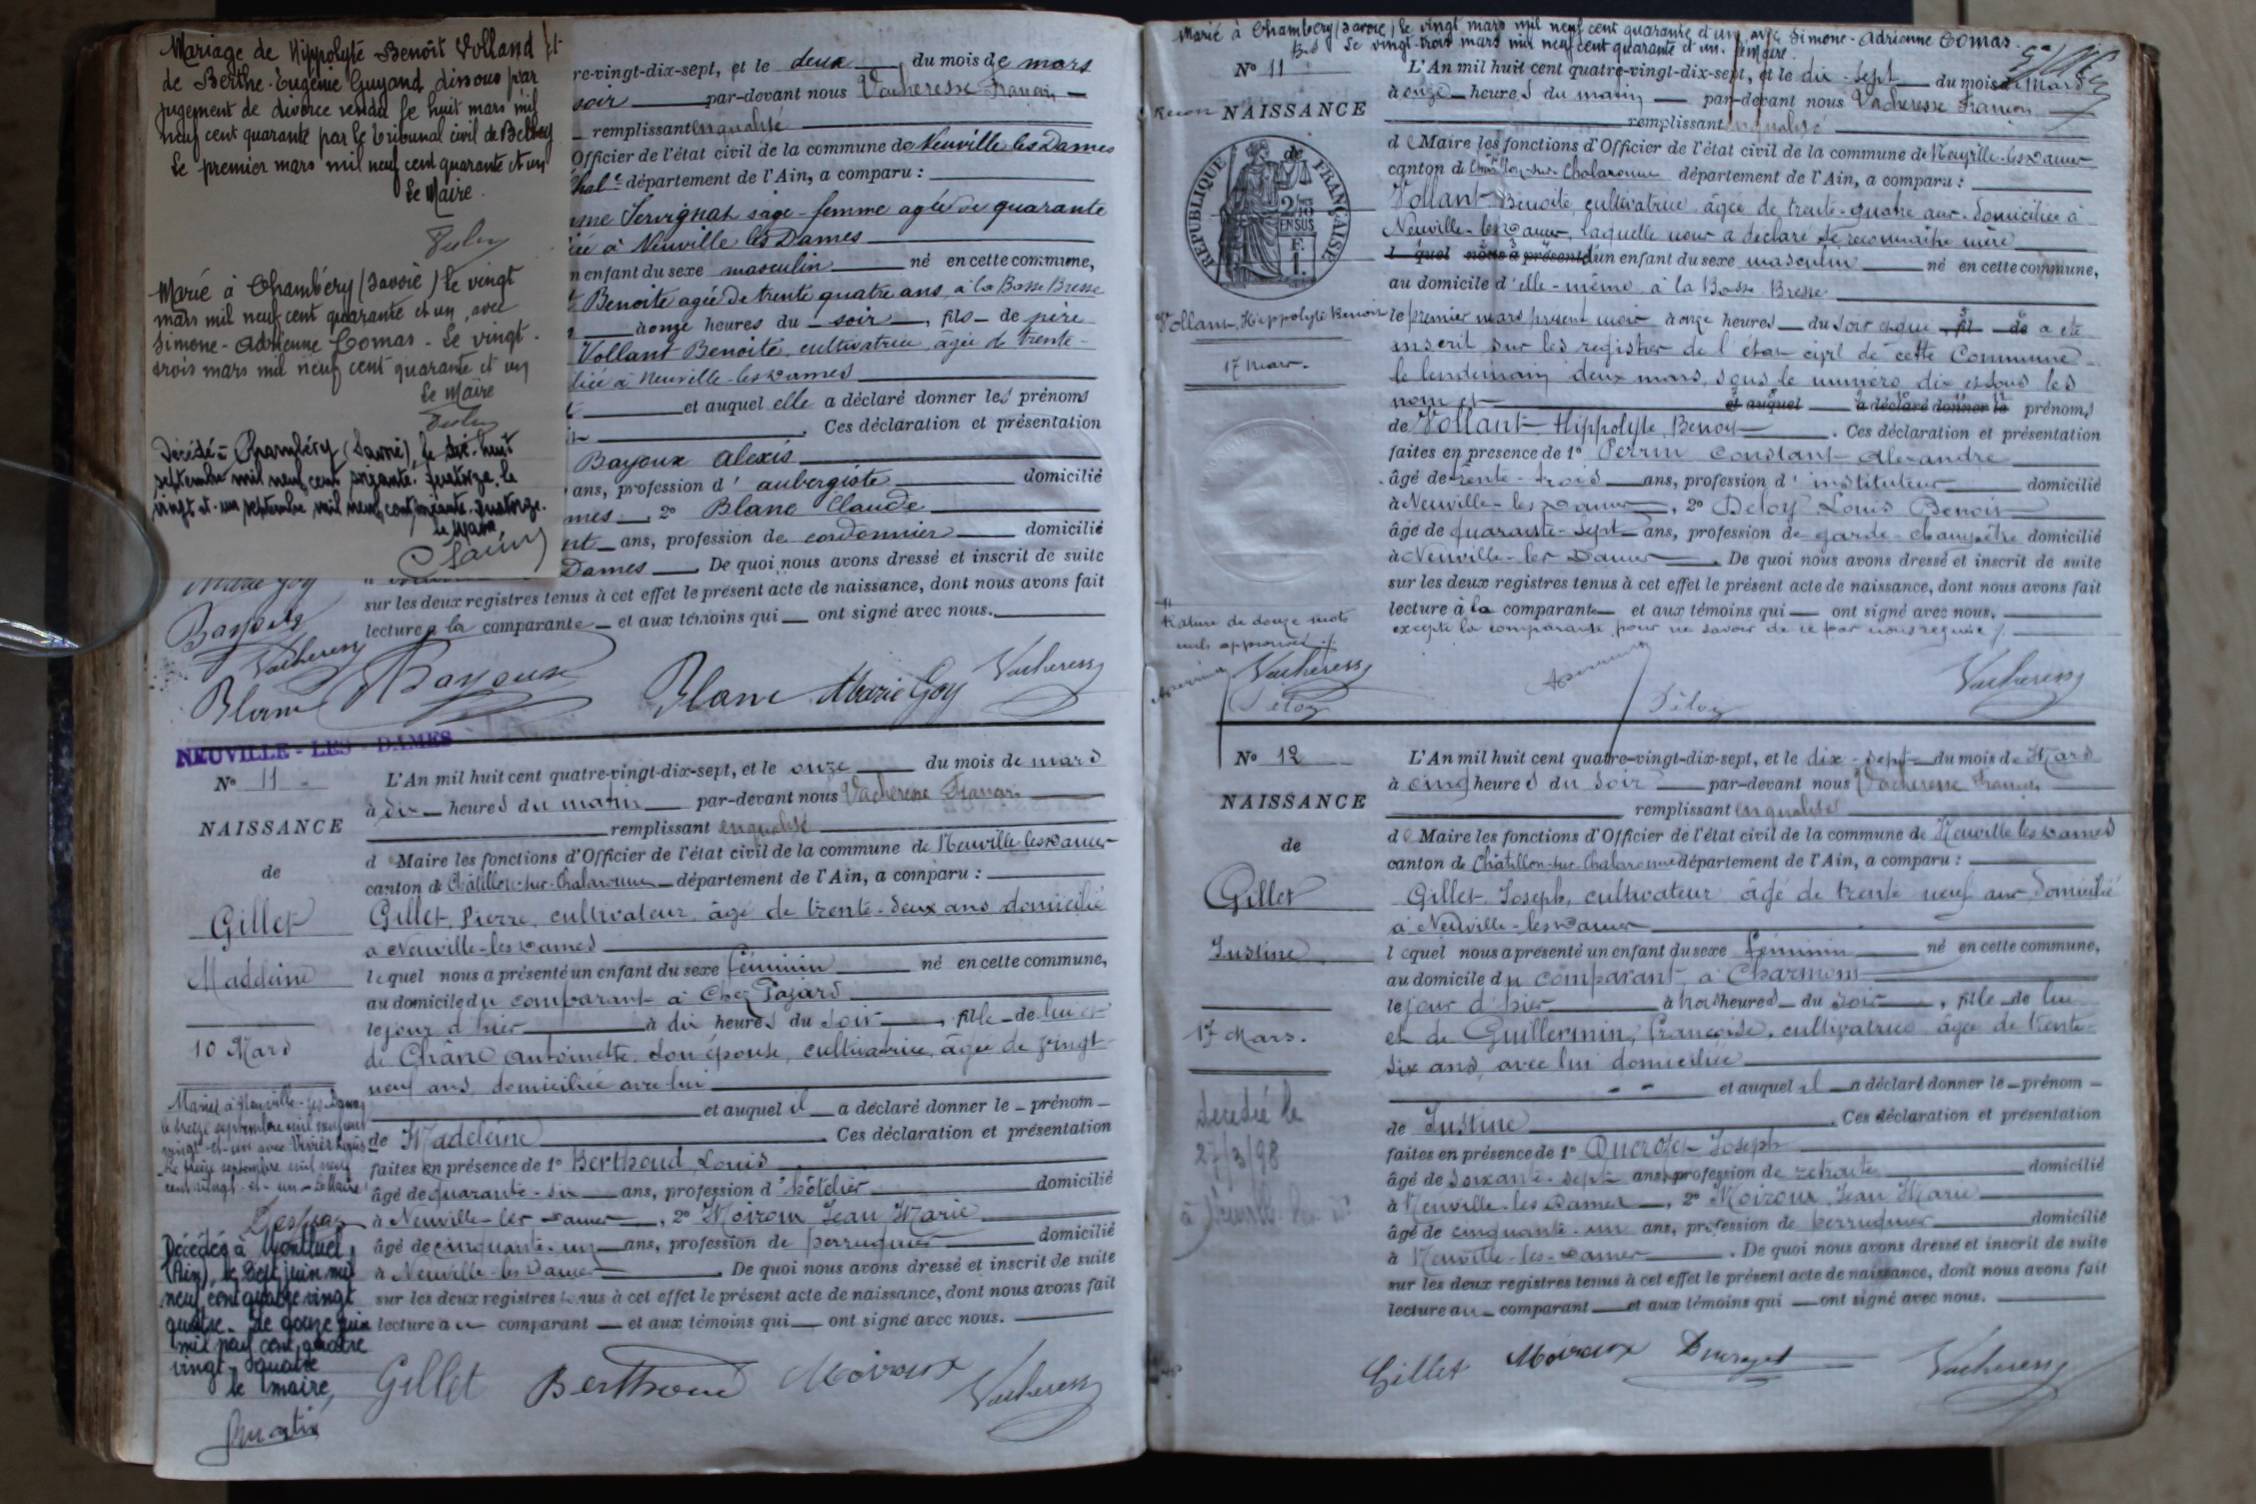 Mariage de Hippolyte Benoît Volland et
de Berthe Eugénie Guyand dissous par
jugement de divorce rendu le huit mars mil
neuf cent quarante par le Tribunal civil de Belley
Le premier mars mil neuf cent quarante et un
Le Maire.
Marié à Chambéry (Savoie) le vingt
mars mil neuf cent quarante et un, avec
Simone-Adrienne Comas. Le vingt-
trois mars mil neuf cent quarante et un
Le Maire
Décédé à Chambéry (Savoie), le dix-huit
septembre mil neuf cent soixante-quatorze. le
vingt et un septembre mil neuf cent soixante-quatorze.
le Maire
re-vingt-dix-sept, et le deux du mois de mars
soir par-devant nous Vacheresse François
remplissant en qualité
Officier de l'état civil de la commune de Neuville les Dames
Chal. département de l'Ain, a comparu :
Servignat sage-femme agée de quarante
iée à Neuville les Dames
n enfant du sexe masculin né en cette commune,
t Benoite agée de trente quatre ans, à la Basse Bresse
à onze heures du soir, fils de père
Vollant Benoite, cultivatrice, agée de trente-
liée à Neuville-les-Dames
et auquel elle a déclaré donner les prénoms
Ces déclaration et présentation
Bayoux Alexis
ans, profession d'aubergiste domicilié
mes, 2° Blanc Claude
ans, profession de cordonnier domicilié
Dames. De quoi nous avons dressé et inscrit de suite
sur les deux registres tenus à cet effet le présent acte de naissance, dont nous avons fait
lecture à la comparante et aux témoins qui ont signé avec nous.
Marie Goy
Bayoux
Vacheresse
Blanc Bayoux Blanc Marie Goy Vacheresse
NEUVILLE-LES-DAMES
N° 11
NAISSANCE
de
Gillet
Madeleine
10 Mars
Mariée à Neuville-les-Dames
le treize septembre mil neuf cent
vingt-et-un avec
Le treize septembre mil neuf
cent vingt-et-un Le Maire
Décédée à Montluel,
(Ain), le sept juin mil
neuf cent quatre vingt
quatre. Le douze juin
mil neuf cent quatre
vingt quatre
le maire,
L'An mil huit cent quatre-vingt-dix-sept, et le onze du mois de mars
à dix heures du matin par-devant nous Vacheresse François
remplissant en qualité
de Maire les fonctions d'Officier de l'état civil de la commune de Neuville les Dames
canton de Châtillon-sur-Chalaronne département de l'Ain, a comparu :
Gillet Pierre, cultivateur, âgé de trente-deux ans domicilié
à Neuville-les-Dames
lequel nous a présenté un enfant du sexe féminin né en cette commune,
au domicile du comparant à Chez Pajard
le jour d'hier à dix heures du soir, fille de lui et
de Chânc Antoinette son épouse, cultivatrice, âgée de vingt-
neuf ans, domiciliée avec lui
et auquel il a déclaré donner le prénom
de Madeleine. Ces déclaration et présentation
faites en présence de 1° Berthoud Louis
âgé de quarante-six ans, profession d'hôtelier domicilié
à Neuville-les-Dames, 2° Moiroux Jean Marie
âgé de cinquante-un ans, profession de perruquier domicilié
à Neuville-les-Dames. De quoi nous avons dressé et inscrit de suite
sur les deux registres tenus à cet effet le présent acte de naissance, dont nous avons fait
lecture au comparant et aux témoins qui ont signé avec nous.
Gillet Berthoud Moiroux Vacheresse
Marié à Chambéry (Savoie) le vingt mars mil neuf cent quarante et un avec Simone-Adrienne Comas.
Le vingt-trois mars mil neuf cent quarante et un. Le Maire.
N° 11
Recon NAISSANCE
RÉPUBLIQUE FRANÇAISE
Vollant, Hippolyte Benoit
17 mars.
Rature de douze mots
nuls approuvée
Vacheresse
Déloy
L'An mil huit cent quatre-vingt-dix-sept, et le dix-sept du mois de Mars
à onze heures du matin par-devant nous Vacheresse François
remplissant en qualité
de Maire les fonctions d'Officier de l'état civil de la commune de Neuville-les-Dames
canton de Châtillon-sur-Chalaronne département de l'Ain, a comparu :
Vollant Benoite, cultivatrice, âgée de trente-quatre ans domiciliée à
Neuville-les-Dames, laquelle nous a déclaré se reconnaître mère
lequel nous a présenté d'un enfant du sexe masculin né en cette commune,
au domicile d'elle-même à la Basse Bresse
le premier mars présent mois à onze heures du soir et que fil de a été
inscrit sur les registres de l'état civil de cette Commune
le lendemain deux mars, sous le numéro dix et sous les
nom et et auquel a déclaré donner le prénoms
de Vollant Hippolyte Benoit. Ces déclaration et présentation
faites en présence de 1° Perrin Constant Alexandre
âgé de trente-trois ans, profession d'instituteur domicilié
à Neuville-les-Dames, 2° Deloy Louis Benoit
âgé de quarante-sept ans, profession de garde-champêtre domicilié
à Neuville-les-Dames. De quoi nous avons dressé et inscrit de suite
sur les deux registres tenus à cet effet le présent acte de naissance, dont nous avons fait
lecture à la comparante et aux témoins qui ont signé avec nous.
excepté la comparante pour ne savoir de ce par nous requise
Déloy Vacheresse
N° 12
NAISSANCE
de
Gillet
Justine
17 Mars.
Décédée le
27/3/98
L'An mil huit cent quatre-vingt-dix-sept, et le dix-sept du mois de Mars
à cinq heures du soir par-devant nous Vacheresse François
remplissant en qualité
de Maire les fonctions d'Officier de l'état civil de la commune de Neuville les Dames
canton de Châtillon-sur-Chalaronne département de l'Ain, a comparu :
Gillet Joseph, cultivateur âgé de trente neuf ans domicilié
à Neuville-les-Dames
lequel nous a présenté un enfant du sexe féminin né en cette commune,
au domicile du comparant à Charmont
le jour d'hier à trois heures du soir, fille de lui
et de Guillermin, Françoise, cultivatrice âgée de trente-
six ans, avec lui domiciliée
et auquel il a déclaré donner le prénom
de Justine. Ces déclaration et présentation
faites en présence de 1° Joseph
âgé de soixante-sept ans, profession de retraité domicilié
à Neuville-les-Dames, 2° Moiroux Jean Marie
âgé de cinquante-un ans, profession de perruquier domicilié
à Neuville-les-Dames. De quoi nous avons dressé et inscrit de suite
sur les deux registres tenus à cet effet le présent acte de naissance, dont nous avons fait
lecture au comparant et aux témoins qui ont signé avec nous.
Gillet Moiroux Vacheresse